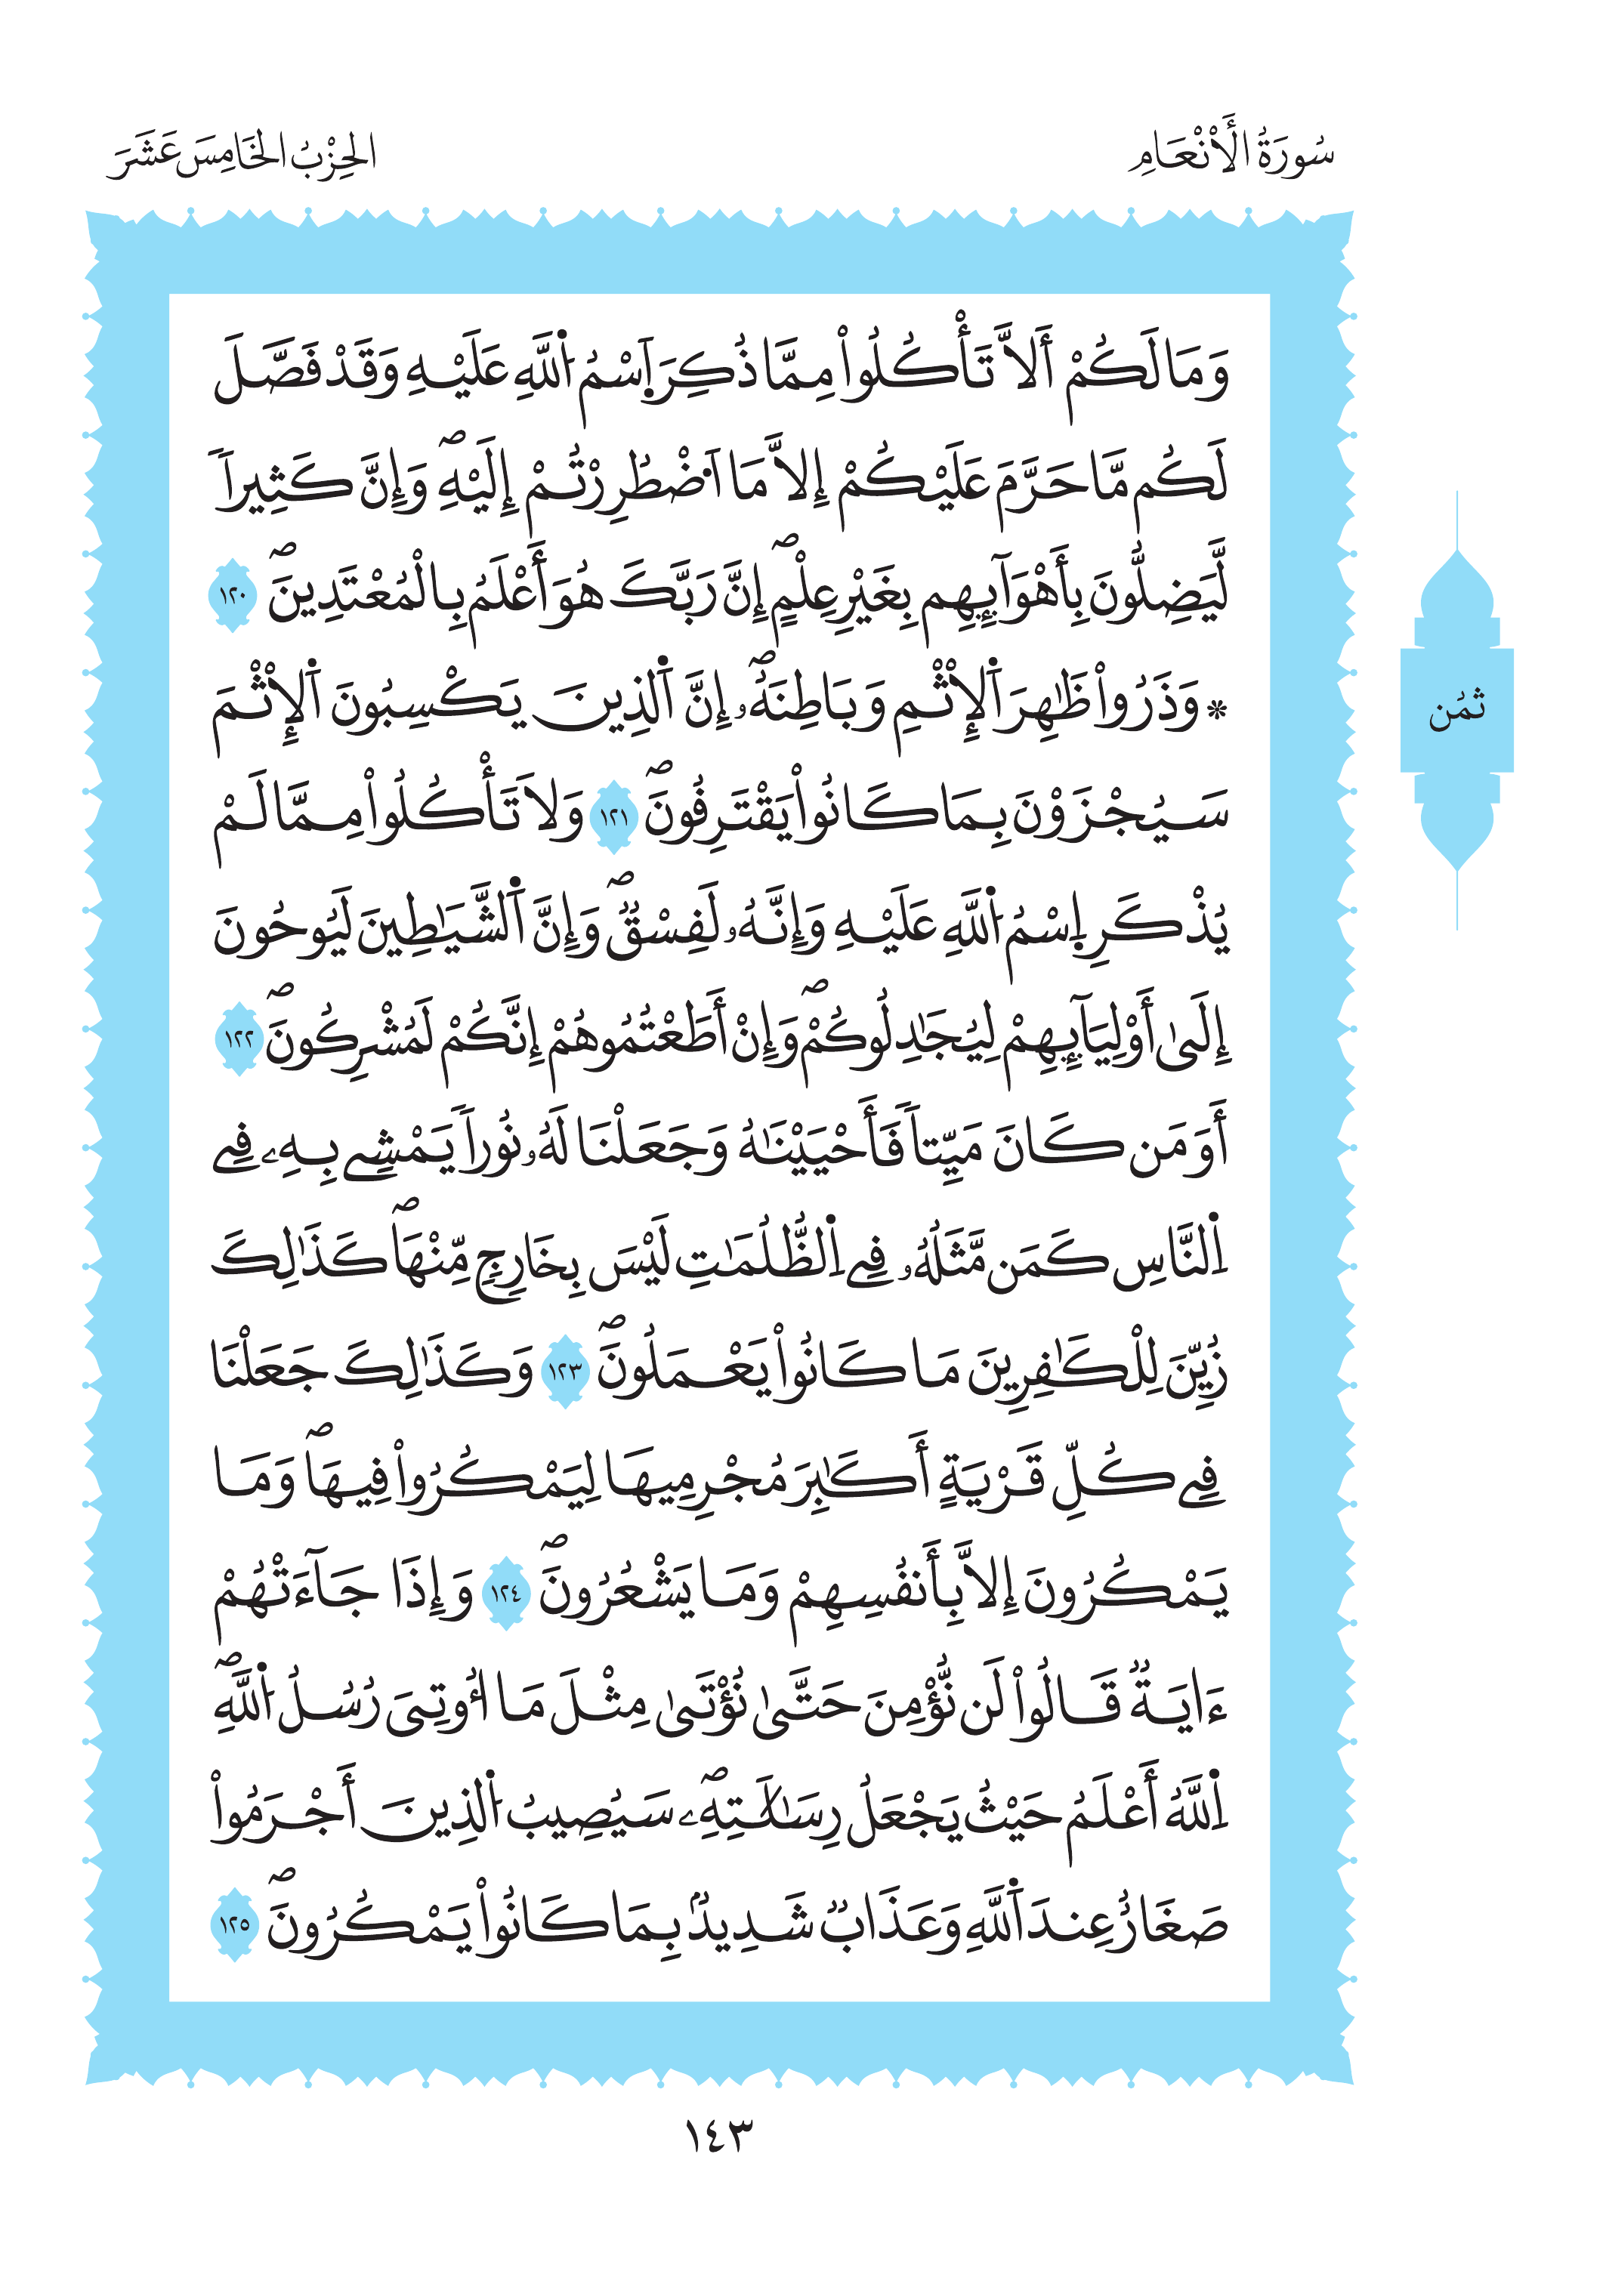 سُورَةُ الْأَنْعَامِ
الحِزْبُ الخَامِسَ عَشَرَ
وَمَا لَكُمْ أَلَّا تَأْكُلُواْ مِمَّا ذُكِرَ اَ۪سْمُ اُ۬للَّهِ عَلَيْهِ وَقَدْ فَصَّلَ
لَكُم مَّا حَرَّمَ عَلَيْكُمْ إِلَّا مَا اَ۟ضْطُرِرْتُمْ إِلَيْهِۖ وَإِنَّ كَثِيراٗ
لَّيَضِلُّونَ بِأَهْوَآئِهِم بِغَيْرِ عِلْمٍۖ إِنَّ رَبَّكَ هُوَ أَعْلَمُ بِالْمُعْتَدِينَۖ ١٢٠
* وَذَرُواْ ظَٰهِرَ اَ۬لْإِثْمِ وَبَاطِنَهُۥٓۖ إِنَّ اَ۬لذِينَ يَكْسِبُونَ اَ۬لْإِثْمَ
سَيُجْزَوْنَ بِمَا كَانُواْ يَقْتَرِفُونَۖ ١٢١ وَلَا تَأْكُلُواْ مِمَّا لَمْ
يُذْكَرِ اِ۪سْمُ اُ۬للَّهِ عَلَيْهِ وَإِنَّهُۥ لَفِسْقٞۖ وَإِنَّ اَ۬لشَّيَٰطِينَ لَيُوحُونَ
إِلَىٰ أَوْلِيَآئِهِمْ لِيُجَٰدِلُوكُمْۖ وَإِنْ أَطَعْتُمُوهُمْ إِنَّكُمْ لَمُشْرِكُونَۖ ١٢٢
أَوَمَن كَانَ مَيِّتاٗ فَأَحْيَيْنَٰهُ وَجَعَلْنَا لَهُۥ نُوراٗ يَمْشِے بِهِۦ فِے
اِ۬لنَّاسِ كَمَن مَّثَلُهُۥ فِے اِ۬لظُّلُمَٰتِ لَيْسَ بِخَارِجٖ مِّنْهَاۖ كَذَٰلِكَ
زُيِّنَ لِلْكَٰفِرِينَ مَا كَانُواْ يَعْمَلُونَۖ ١٢٣ وَكَذَٰلِكَ جَعَلْنَا
فِے كُلِّ قَرْيَةٍ أَكَٰبِرَ مُجْرِمِيهَا لِيَمْكُرُواْ فِيهَاۖ وَمَا
يَمْكُرُونَ إِلَّا بِأَنفُسِهِمْ وَمَا يَشْعُرُونَۖ ١٢٤ وَإِذَا جَآءَتْهُمْ
ءَايَةٞ قَالُواْ لَن نُّؤْمِنَ حَتَّىٰ نُؤْتَىٰ مِثْلَ مَا أُوتِيَ رُسُلُ اُ۬للَّهِۖ
اِ۬للَّهُ أَعْلَمُ حَيْثُ يَجْعَلُ رِسَالَٰتِهِۦۖ سَيُصِيبُ اُ۬لذِينَ أَجْرَمُواْ
صَغَارٌ عِندَ اَ۬للَّهِ وَعَذَابٞ شَدِيدُۢ بِمَا كَانُواْ يَمْكُرُونَۖ ١٢٥
ثُمُن
١٤٣